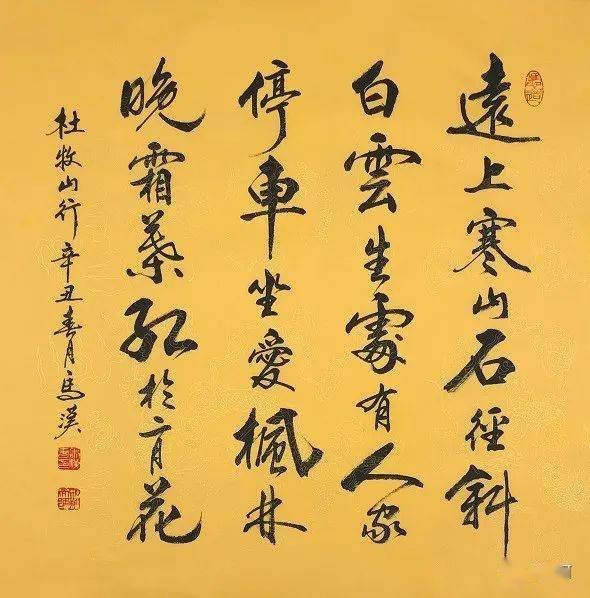 遠上寒山石徑斜
白雲生處有人家
停車坐愛楓林
晚霜葉紅於二月花
杜牧山行辛丑春月馬漢